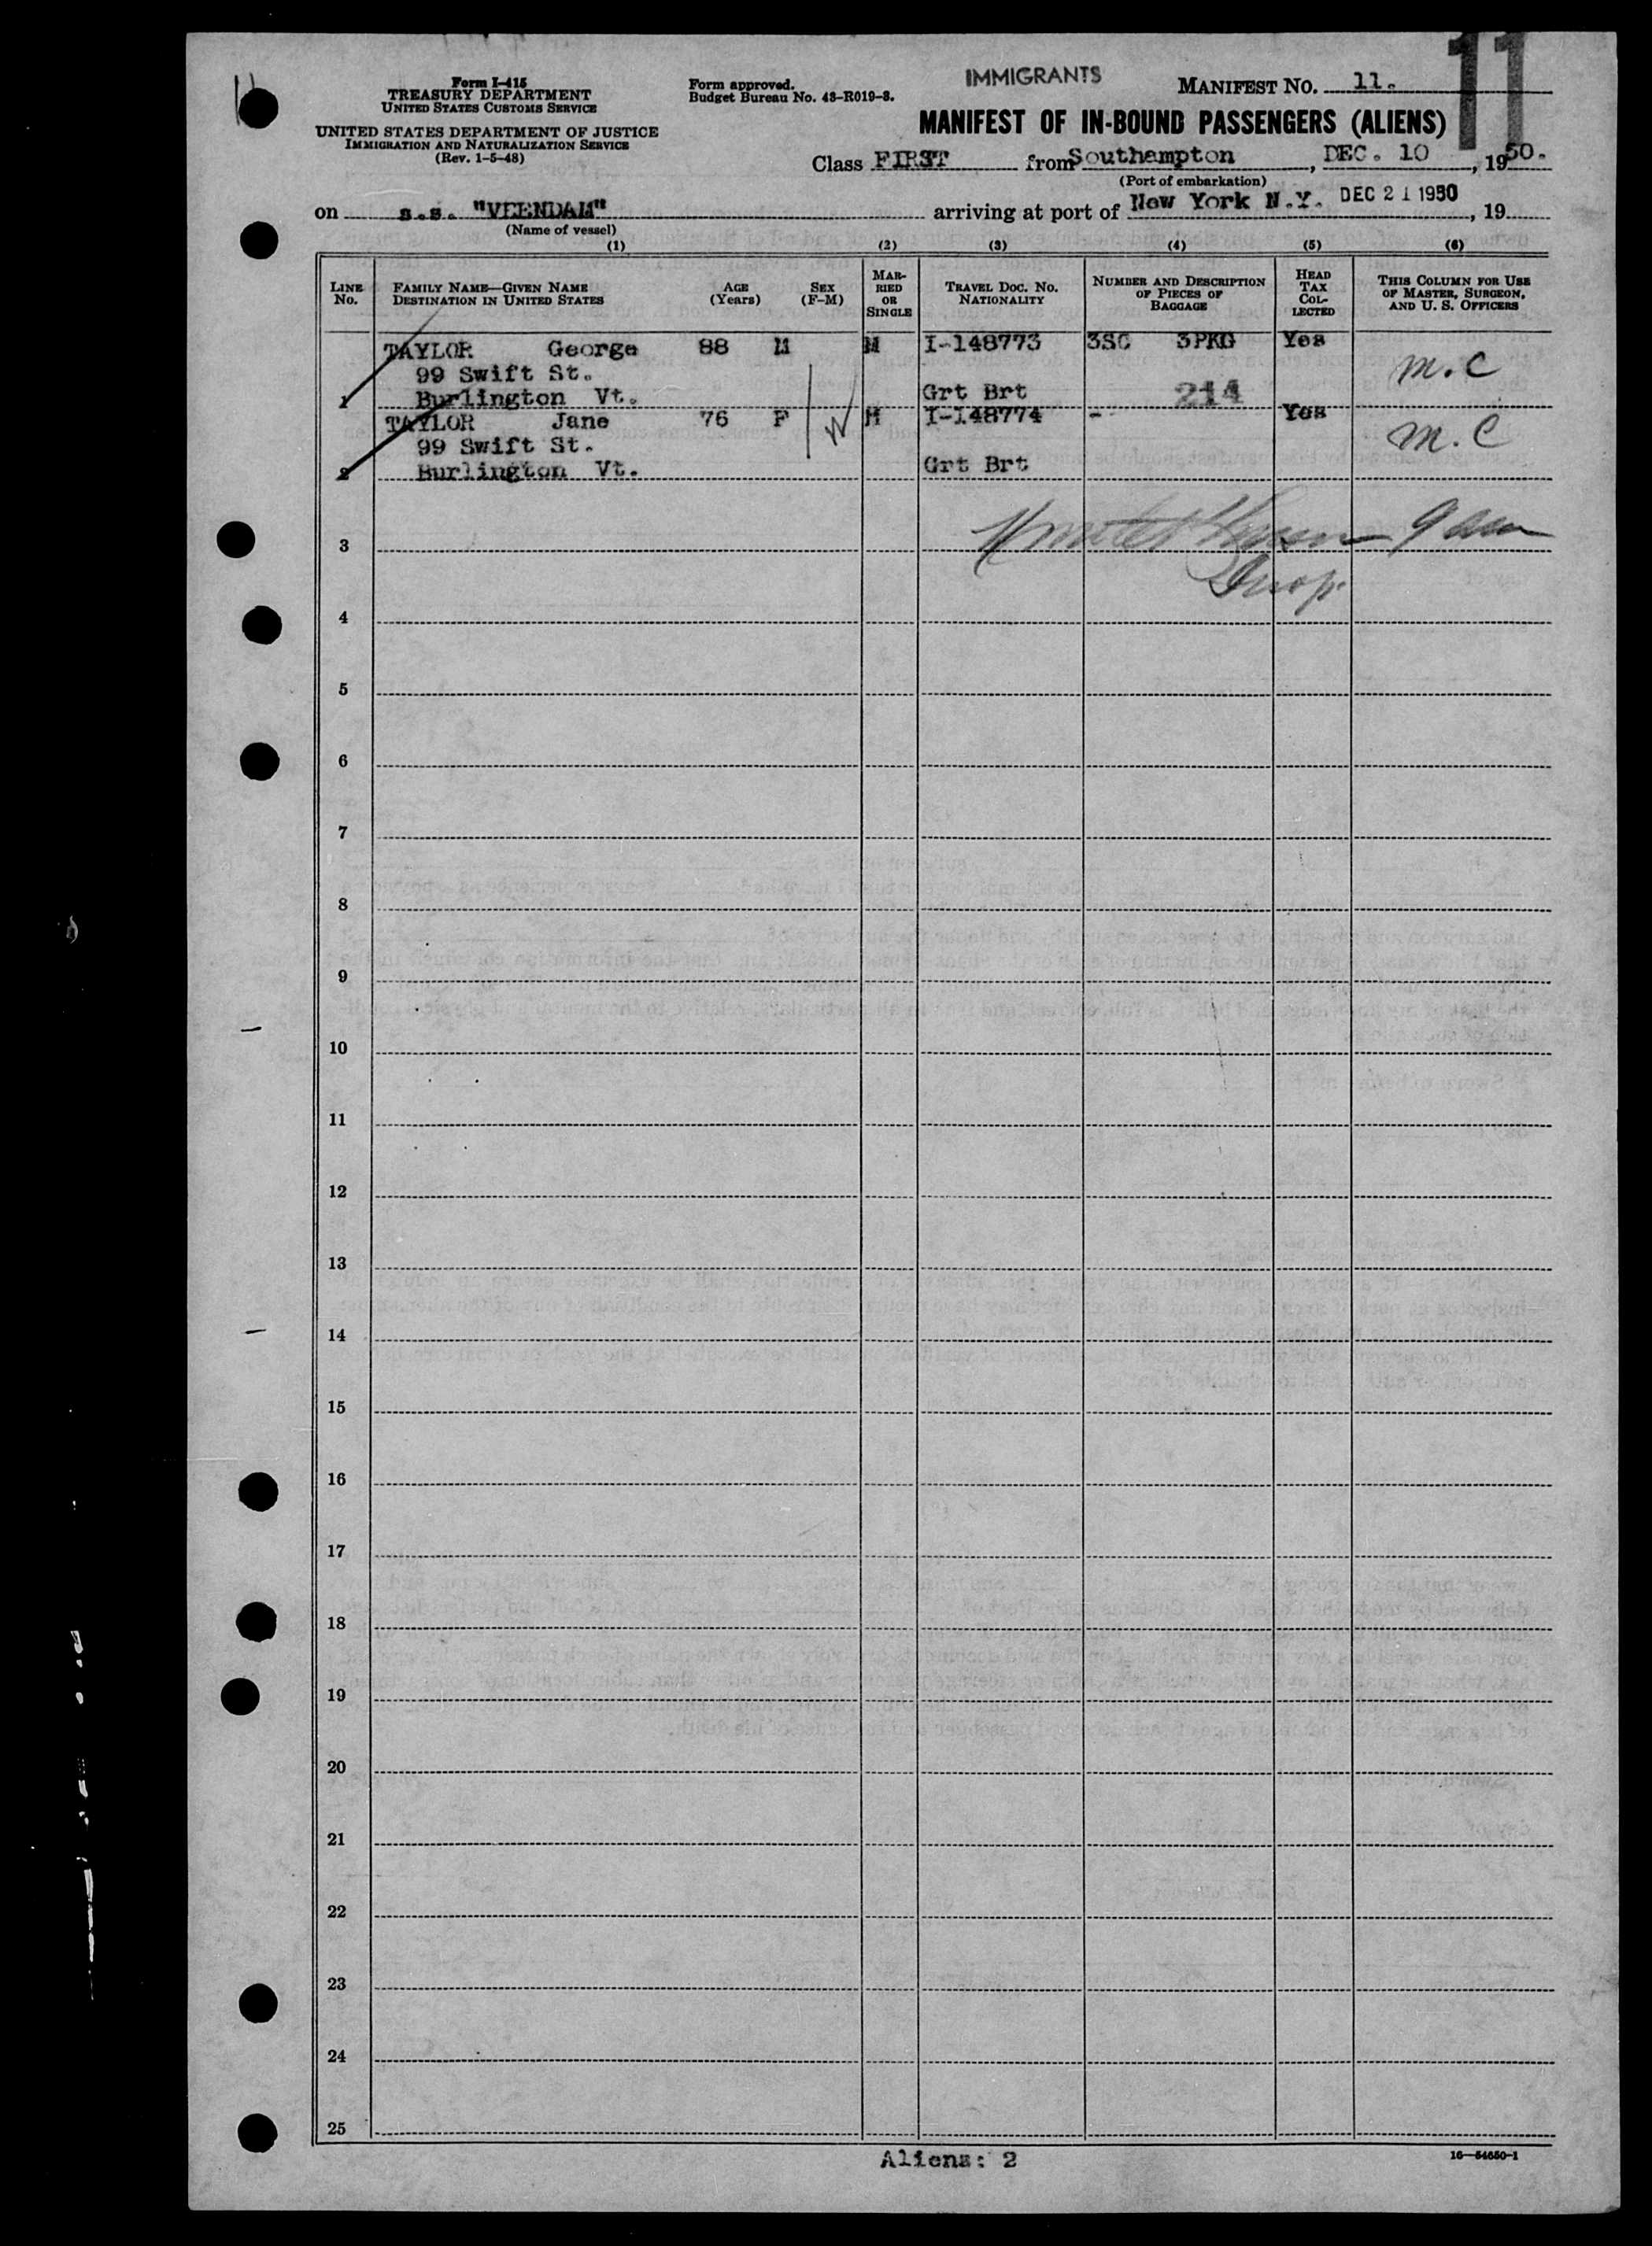 11
IMMIGRANTS
Form I-415
TREASURY DEPARTMENT
UNITED STATES CUSTOMS SERVICE
UNITED STATES DEPARTMENT OF JUSTICE
IMMIGRATION AND NATURALIZATION SERVICE
(Rev. 1-5-48)
Form approved.
Budget Bureau No. 43-R019-3.
MANIFEST NO. 11.
MANIFEST OF IN-BOUND PASSENGERS (ALIENS)
Class FIRST from Southampton, DEC. 10, 1950.
(Port of embarkation)
on s.s. "VEENDAM" arriving at port of New York N.Y. DEC 21 1950, 19
(Name of vessel)
(1) (2) (3) (4) (5) (6)
LINE No. FAMILY NAME—GIVEN NAME DESTINATION IN UNITED STATES AGE (Years) SEX (F-M) MARRIED OR SINGLE TRAVEL DOC. NO. NATIONALITY NUMBER AND DESCRIPTION OF PIECES OF BAGGAGE HEAD TAX COLLECTED THIS COLUMN FOR USE OF MASTER, SURGEON, AND U. S. OFFICERS
TAYLOR George 88 M M I-148773 3SC 3PKG Yes m.c
99 Swift St.
1 Burlington Vt. Grt Brt 214
TAYLOR Jane 76 F M I-148774 - Yes m.c
99 Swift St.
2 Burlington Vt. Grt Brt
3
Insp.
4
5
6
7
8
9
10
11
12
13
14
15
16
17
18
19
20
21
22
23
24
25
Aliens: 2
16—54650-1